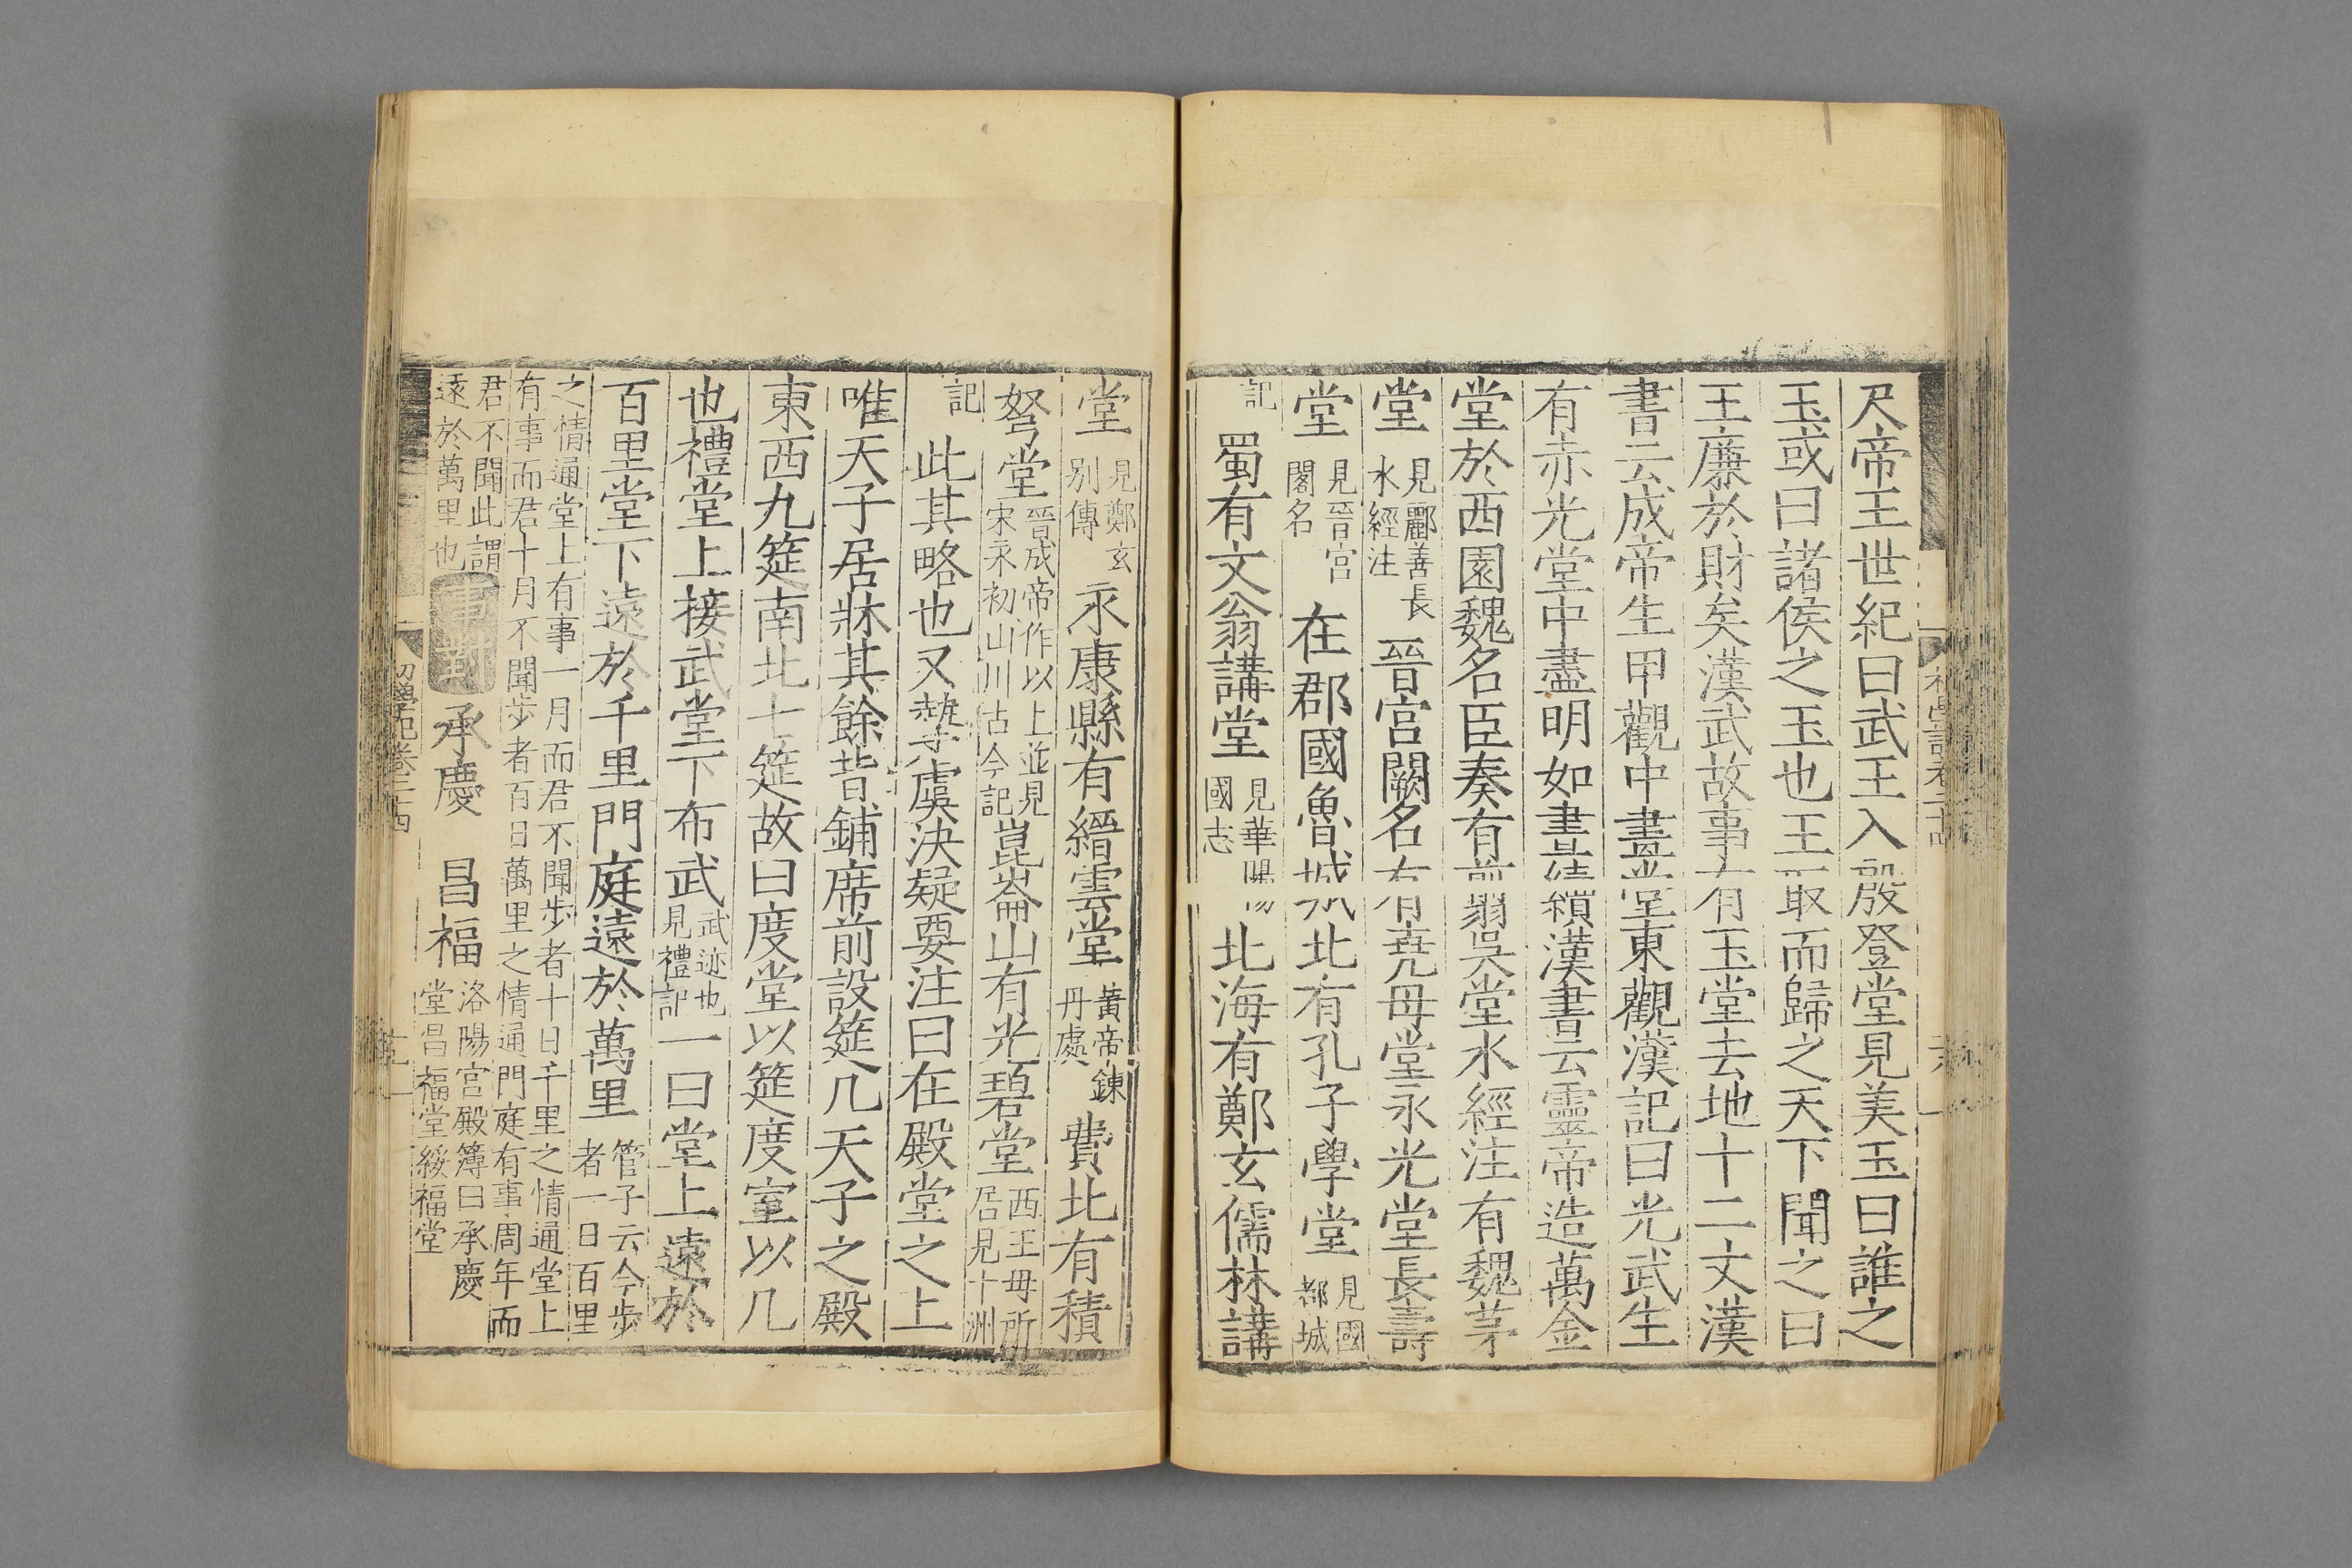 尺帝王世紀曰武王入殷登堂見美玉曰誰之
玉或曰諸侯之玉也王取而歸之天下聞之曰
王廉於財矣漢武故事有玉堂去地十二丈漢
書云成帝生甲觀中畫堂東觀漢記曰光武生
有赤光堂中盡明如晝續漢書云靈帝造萬金
堂於西園魏名臣奏有前翦吳堂水經注有魏茅
堂見酈善長水經注晉宮闕名有堯母堂永光堂長壽
堂見晉宮閣名在郡國魯城北有孔子學堂見國都城
記蜀有文翁講堂見華陽國志北海有鄭玄儒林講
堂見鄭玄別傳永康縣有縉雲堂黃帝鍊丹處費北有積
弩堂晉成帝作以上並見宋永初山川古今記崑崙山有光碧堂西王毋所居見十洲
記此其略也又摯虞決疑要注曰在殿堂之上
唯天子居牀其餘皆鋪席前設筵几天子之殿
東西九筵南北七筵故曰度堂以筵度室以几
也禮堂上接武堂下布武武迹也見禮記一曰堂上遠於
百里堂下遠於千里門庭遠於萬里管子云今步者一日百里
之情通堂上有事一月而君不聞步者十日千里之情通堂上
有事而君十月不聞步者百日萬里之情通門庭有事周年而
君不聞此謂遠於萬里也事對承慶 昌福洛陽宮殿簿曰承慶堂昌福堂綏福堂
初學記卷二十四